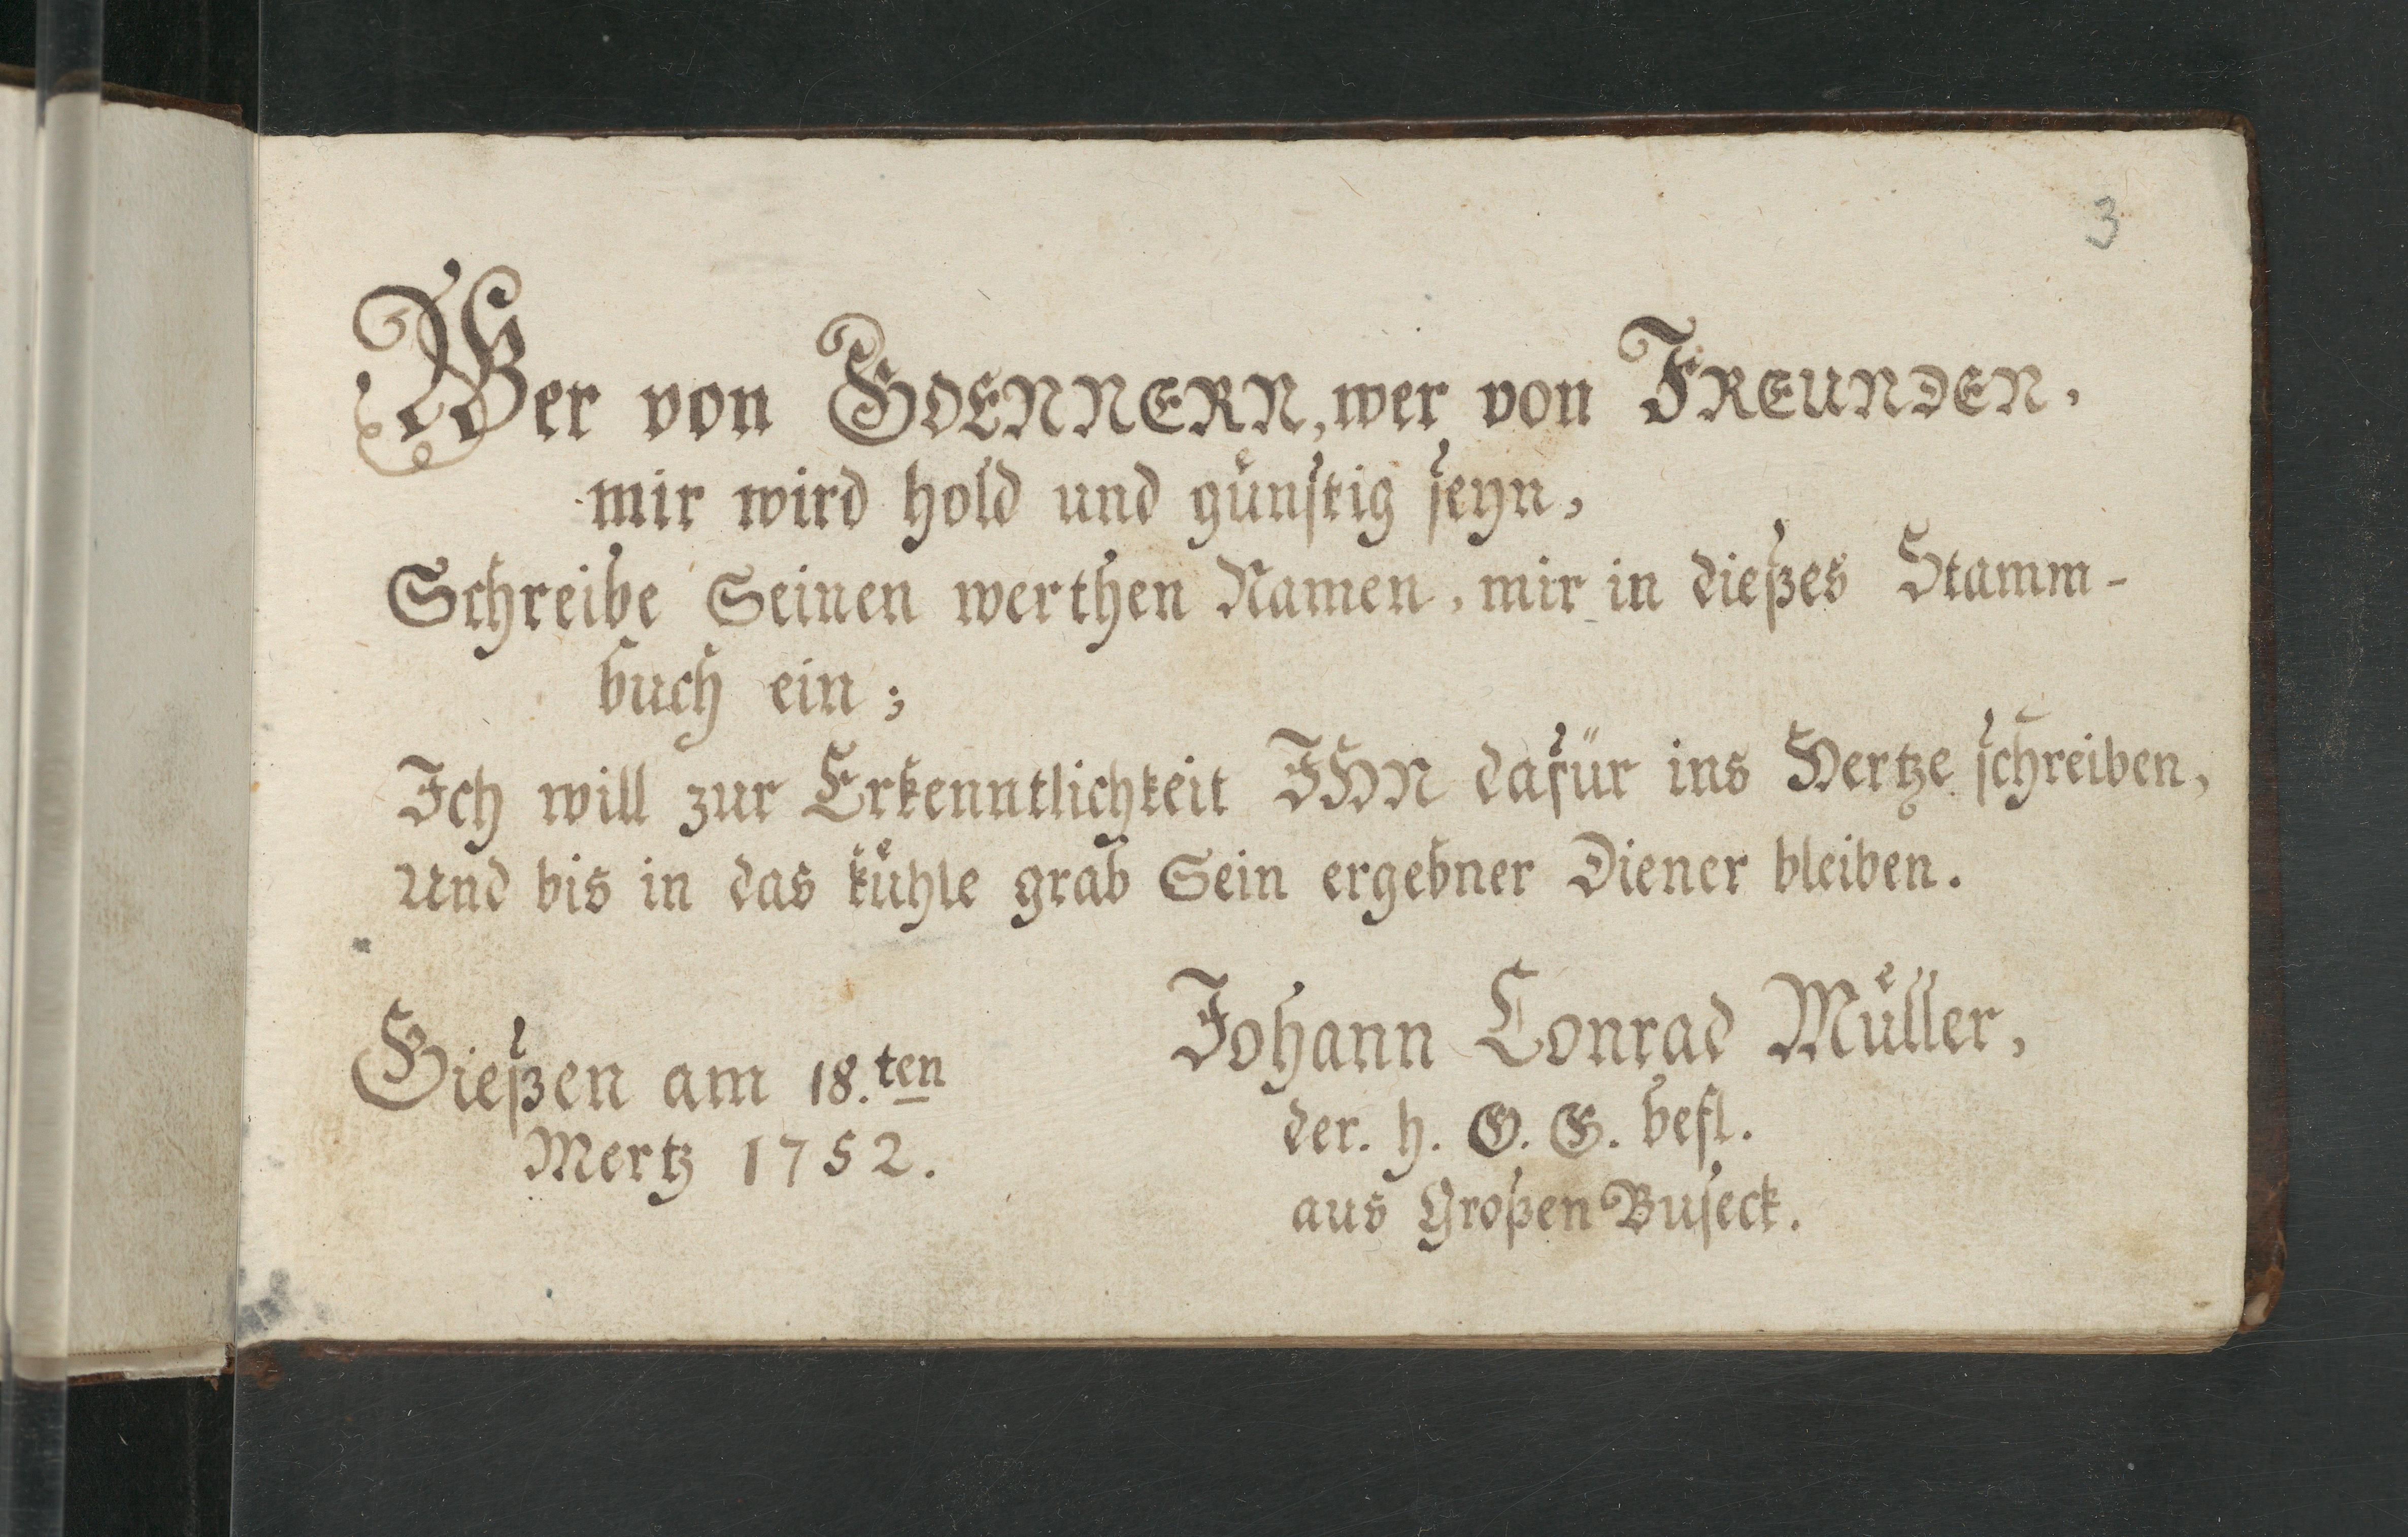 3
Wer von GOENNERN, wer von FREUNDEN,
mir wird hold und günstig seyn,
Schreibe Seinen werthen Namen, mir in dießes Stamm-
buch ein;
Ich will zur Erkenntlichkeit IHN dafür ins Hertze schreiben,
Und bis in das kühle grab Sein ergebner Diener bleiben.
Johann Conrad Müller,
Gießen am 18.ten
der. h. G. G. befl.
Mertz 1752.
aus Großen Buseck.